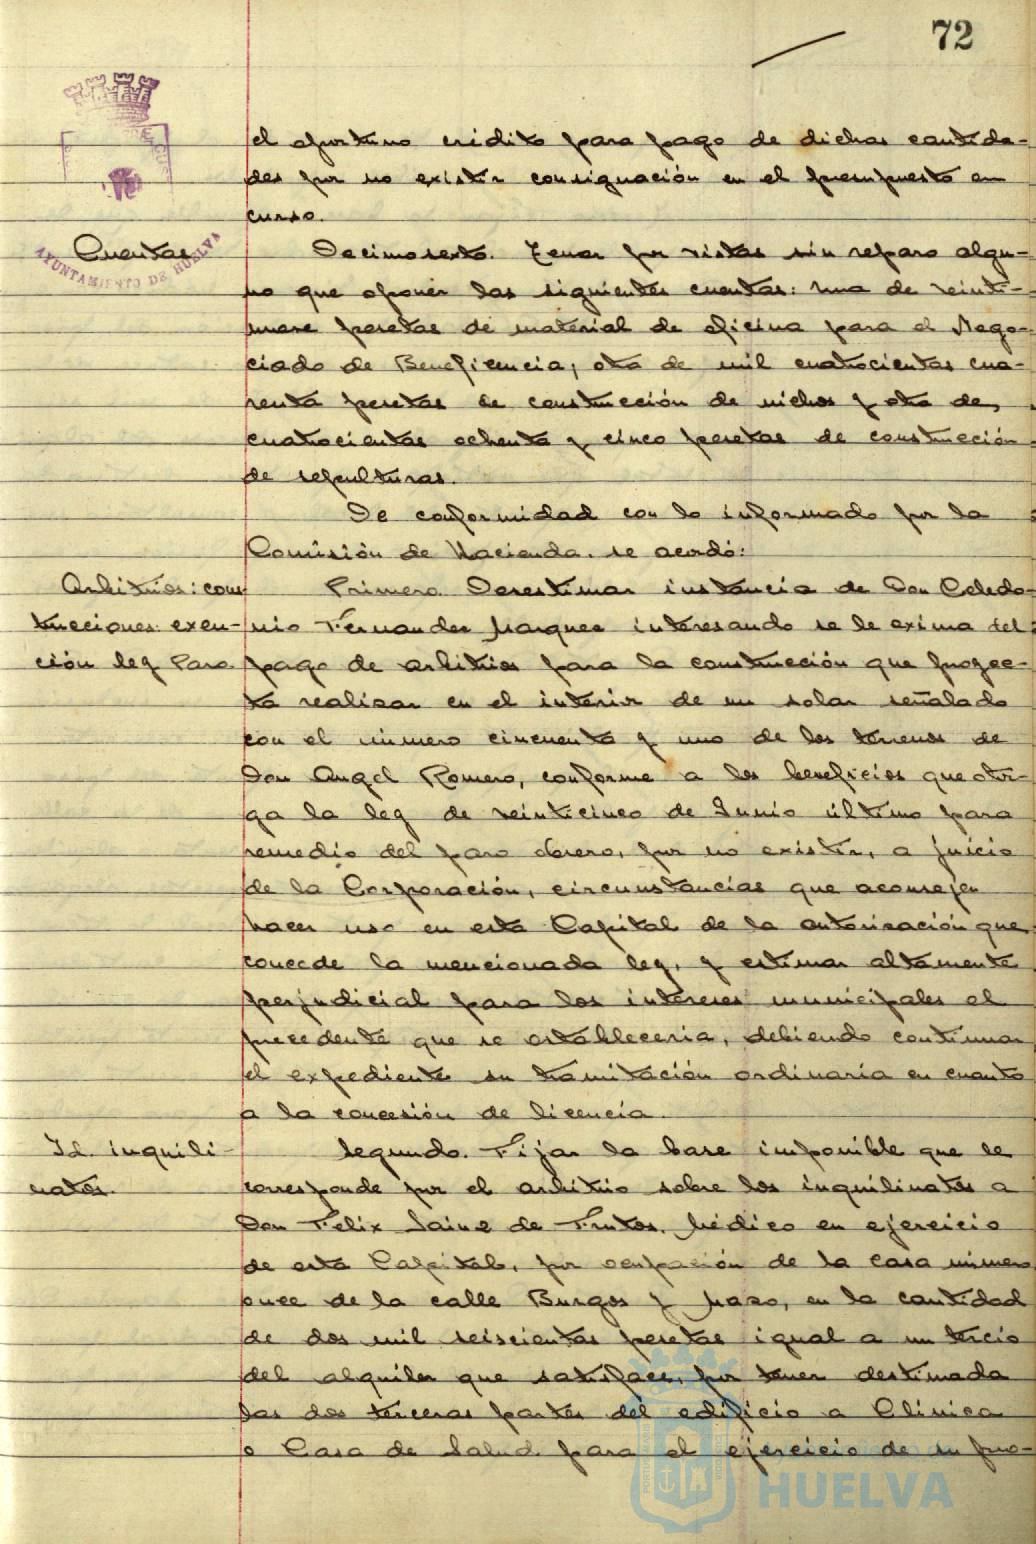 72
el oportuno crédito para pago de dichas cantida-
des por no existir consignación en el presupuesto en
curso.
Cuentas
AYUNTAMIENTO DE HUELVA
Decimosexto. Tener por vistas sin reparo algu-
no que oponer las siguientes cuentas: una de veinti-
nueve pesetas de material de oficina para el Nego-
ciado de Beneficencia, otra de mil cuatrocientas cua-
renta pesetas de construcción de nichos y otra de
cuatrocientas ochenta y cinco pesetas de construcción
de sepulturas.
De conformidad con lo informado por la
Comisión de Hacienda, se acordó:
Arbitrios: cons-
trucciones: exen-
ción ley Paro
Primero. Desestimar instancia de Don Celedo-
nio Fernandez Marquez interesando se le exima del
pago de arbitrios para la construcción que proyec-
ta realizar en el interior de un solar señalado
con el número cincuenta y uno de los terrenos de
Don Angel Romero, conforme a los beneficios que otor-
ga la ley de veinticinco de Junio último para
remedio del paro obrero, por no existir, a juicio
de la Corporación, circunstancias que aconsejen
hacer uso en esta Capital de la autorización que
concede la mencionada ley, y estimar altamente
perjudicial para los intereses municipales el
precedente que se establecería, debiendo continuar
el expediente su tramitación ordinaria en cuanto
a la concesión de licencia.
Id. inquili-
natos.
Segundo. Fijar la base imponible que le
corresponde por el arbitrio sobre los inquilinatos a
Don Felix Sainz de Frutos, Médico en ejercicio
de esta Capital, por ocupación de la casa número
once de la calle Burgos y Mazo, en la cantidad
de dos mil seiscientas pesetas igual a un tercio
del alquiler que satisface, por tener destinada
las dos terceras partes del edificio a Clínica
o Casa de Salud para el ejercicio de su pro-
HUELVA